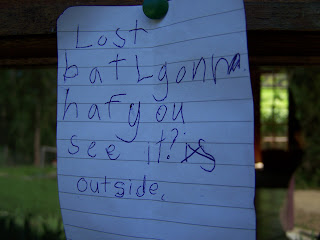 Lost
bat Lgonna.
haf you
see it?
outside.